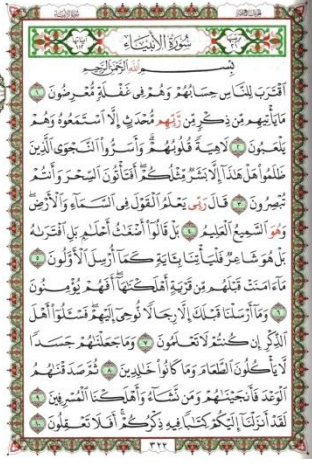 سُورَةُ الأَنبِيَاءِ
بِسْمِ ٱللَّهِ ٱلرَّحْمَٰنِ ٱلرَّحِيمِ
ٱقْتَرَبَ لِلنَّاسِ حِسَابُهُمْ وَهُمْ فِي غَفْلَةٍ مُّعْرِضُونَ ١
مَا يَأْتِيهِم مِّن ذِكْرٍ مِّن رَّبِّهِم مُّحْدَثٍ إِلَّا ٱسْتَمَعُوهُ وَهُمْ
يَلْعَبُونَ ٢ لَاهِيَةً قُلُوبُهُمْ ۗ وَأَسَرُّوا۟ ٱلنَّجْوَى ٱلَّذِينَ
ظَلَمُوا۟ هَلْ هَٰذَآ إِلَّا بَشَرٌ مِّثْلُكُمْ ۖ أَفَتَأْتُونَ ٱلسِّحْرَ وَأَنتُمْ
تُبْصِرُونَ ٣ قَالَ رَبِّي يَعْلَمُ ٱلْقَوْلَ فِي ٱلسَّمَآءِ وَٱلْأَرْضِ ۖ
وَهُوَ ٱلسَّمِيعُ ٱلْعَلِيمُ ٤ بَلْ قَالُوٓا۟ أَضْغَٰثُ أَحْلَٰمٍۭ بَلِ ٱفْتَرَىٰهُ
بَلْ هُوَ شَاعِرٌ فَلْيَأْتِنَا بِـَٔايَةٍ كَمَآ أُرْسِلَ ٱلْأَوَّلُونَ ٥
مَآ ءَامَنَتْ قَبْلَهُم مِّن قَرْيَةٍ أَهْلَكْنَٰهَآ ۖ أَفَهُمْ يُؤْمِنُونَ
٦ وَمَآ أَرْسَلْنَا قَبْلَكَ إِلَّا رِجَالًا نُّوحِيٓ إِلَيْهِمْ ۖ فَسْـَٔلُوٓا۟ أَهْلَ
ٱلذِّكْرِ إِن كُنتُمْ لَا تَعْلَمُونَ ٧ وَمَا جَعَلْنَٰهُمْ جَسَدًا
لَّا يَأْكُلُونَ ٱلطَّعَامَ وَمَا كَانُوا۟ خَٰلِدِينَ ٨ ثُمَّ صَدَقْنَٰهُمُ
ٱلْوَعْدَ فَأَنجَيْنَٰهُمْ وَمَن نَّشَآءُ وَأَهْلَكْنَا ٱلْمُسْرِفِينَ ٩
لَقَدْ أَنزَلْنَآ إِلَيْكُمْ كِتَٰبًا فِيهِ ذِكْرُكُمْ ۖ أَفَلَا تَعْقِلُونَ ١٠
٣٢٢